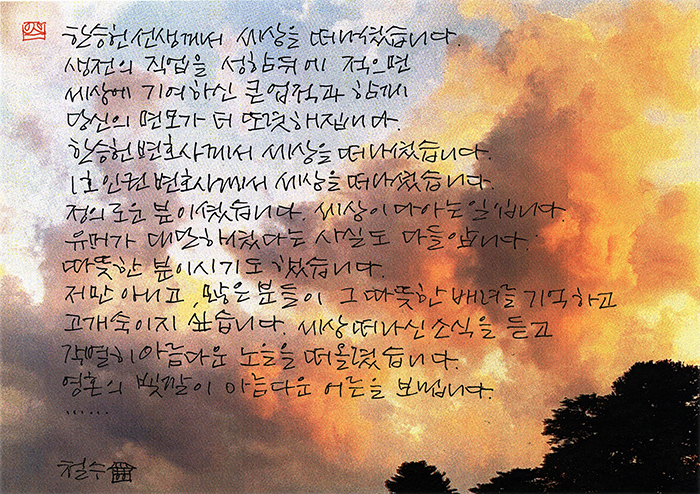 한승헌선생께서 세상을 떠나셨습니다.
생전의 직업을 성함뒤에 적으면
세상에 기여하신 큰업적과 함께
당신의 면모가 더 또렷해집니다.
한승헌변호사께서 세상을 떠나셨습니다.
1호 인권 변호사께서 세상을 떠나셨습니다.
정의로운 분이셨습니다. 세상이 다아는일입니다.
유머가 대단하셨다는 사실도 다들압니다.
따뜻한 분이시기도 했습니다.
저만 아니고, 많은 분들이 그 따뜻한 배려를 기억하고
고개숙이지 싶습니다. 세상떠나신 소식을 듣고
각별히 아름다운 노을을 떠올렸습니다.
영혼의 빛깔이 아름다운 어른을 보냅니다.
......
철수